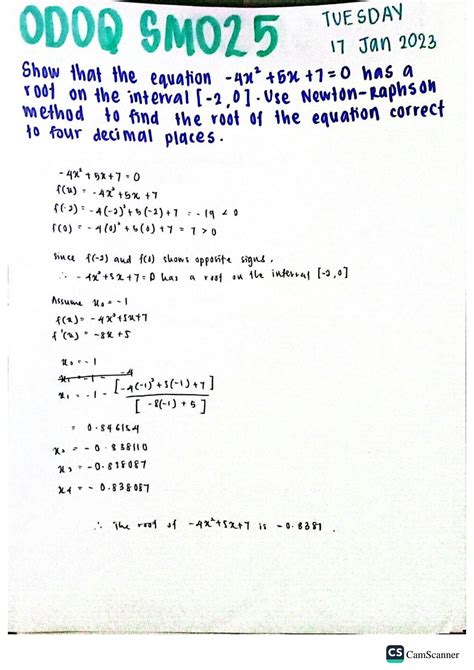 ODOQ SM025
TUESDAY
17 Jan 2023
Show that the equation -4x² + 5x + 7 = 0 has a
root on the interval [-2, 0]. Use Newton-Raphson
method to find the root of the equation correct
to four decimal places.
-4x² + 5x + 7 = 0
f(x) = -4x² + 5x + 7
f(-2) = -4(-2)² + 5(-2) + 7 = -19 < 0
f(0) = -4(0)² + 5(0) + 7 = 7 > 0
Since f(-2) and f(0) shows opposite signs,
∴ -4x² + 5x + 7 = 0 has a root on the interval [-2, 0]
Assume x₀ = -1
f(x) = -4x² + 5x + 7
f'(x) = -8x + 5
x₀ = -1
x₁ = -1 - -4
x₁ = -1 - [-4(-1)² + 5(-1) + 7]
[-8(-1) + 5]
= 0.846154
x₂ = -0.838110
x₃ = -0.838087
x₄ = -0.838087
∴ The root of -4x² + 5x + 7 is -0.8381.
CS CamScanner